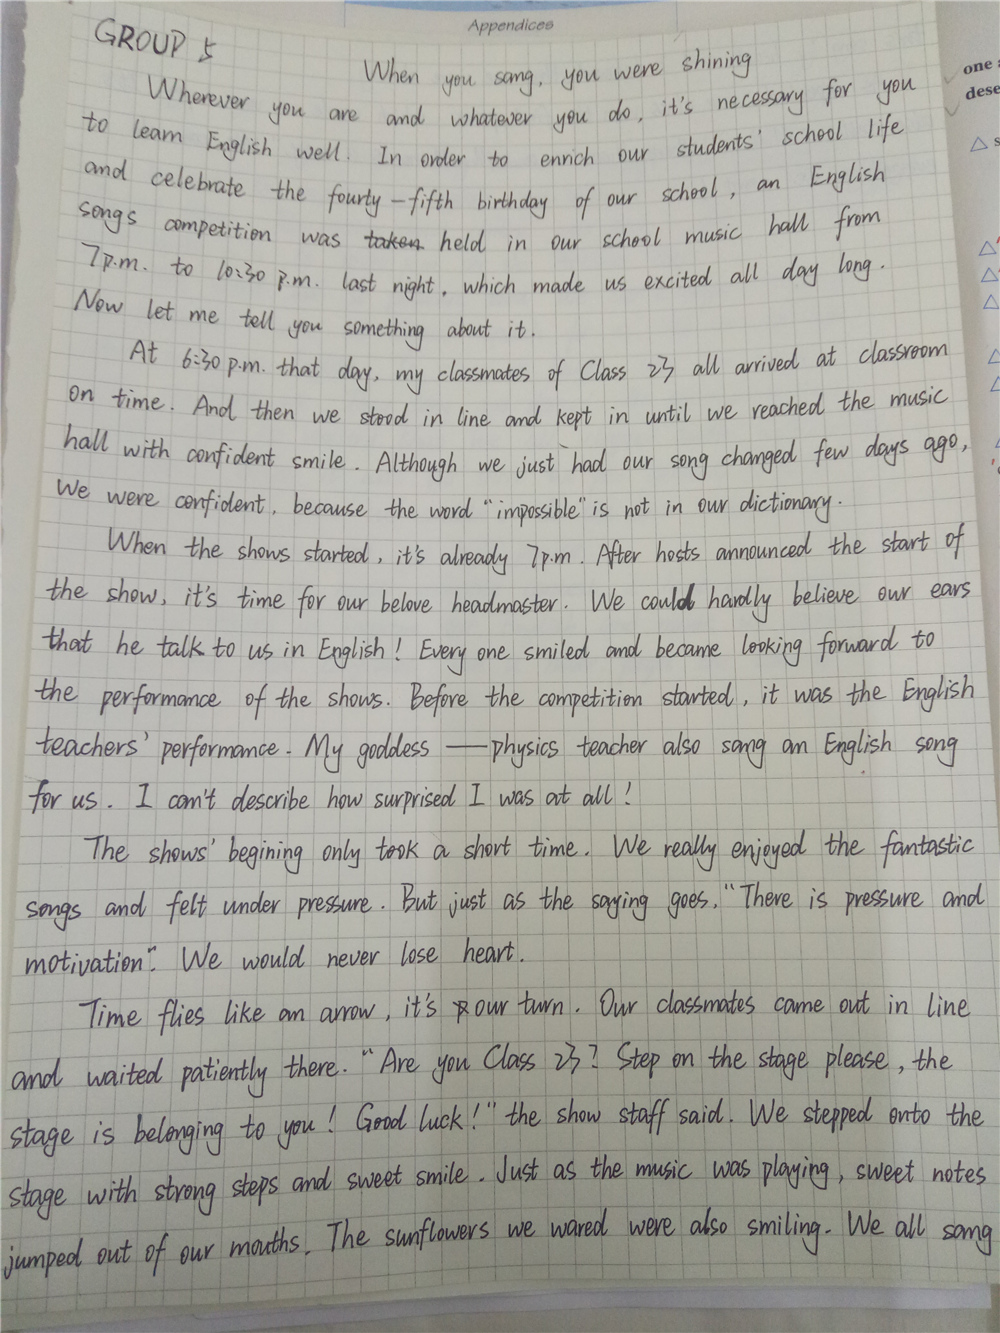 Appendices
GROUP 5
one
dese
When you sang, you were shining
Wherever you are and whatever you do, it's necessary for you
to learn English well. In order to enrich our students' school life
and celebrate the fourty-fifth birthday of our school, an English
songs competition was taken held in our school music hall from
7p.m. to 10:30 p.m. last night, which made us excited all day long.
Now let me tell you something about it.
At 6:30 p.m. that day, my classmates of Class 23 all arrived at classroom
on time. And then we stood in line and kept in until we reached the music
hall with confident smile. Although we just had our song changed few days ago,
We were confident, because the word "impossible" is not in our dictionary.
When the shows started, it's already 7p.m. After hosts announced the start of
the show, it's time for our belove headmaster. We could hardly believe our ears
that he talk to us in English! Every one smiled and became looking forward to
the performance of the shows. Before the competition started, it was the English
teachers' performance. My goddess —— physics teacher also sang an English song
for us. I can't describe how surprised I was at all!
The shows' begining only took a short time. We really enjoyed the fantastic
songs and felt under pressure. But just as the saying goes, "There is pressure and
motivation". We would never lose heart.
Time flies like an arrow, it's our turn. Our classmates came out in line
and waited patiently there. "Are you Class 23? Step on the stage please, the
stage is belonging to you! Good luck!" the show staff said. We stepped onto the
stage with strong steps and sweet smile. Just as the music was playing, sweet notes
jumped out of our mouths. The sunflowers we wared were also smiling. We all sang